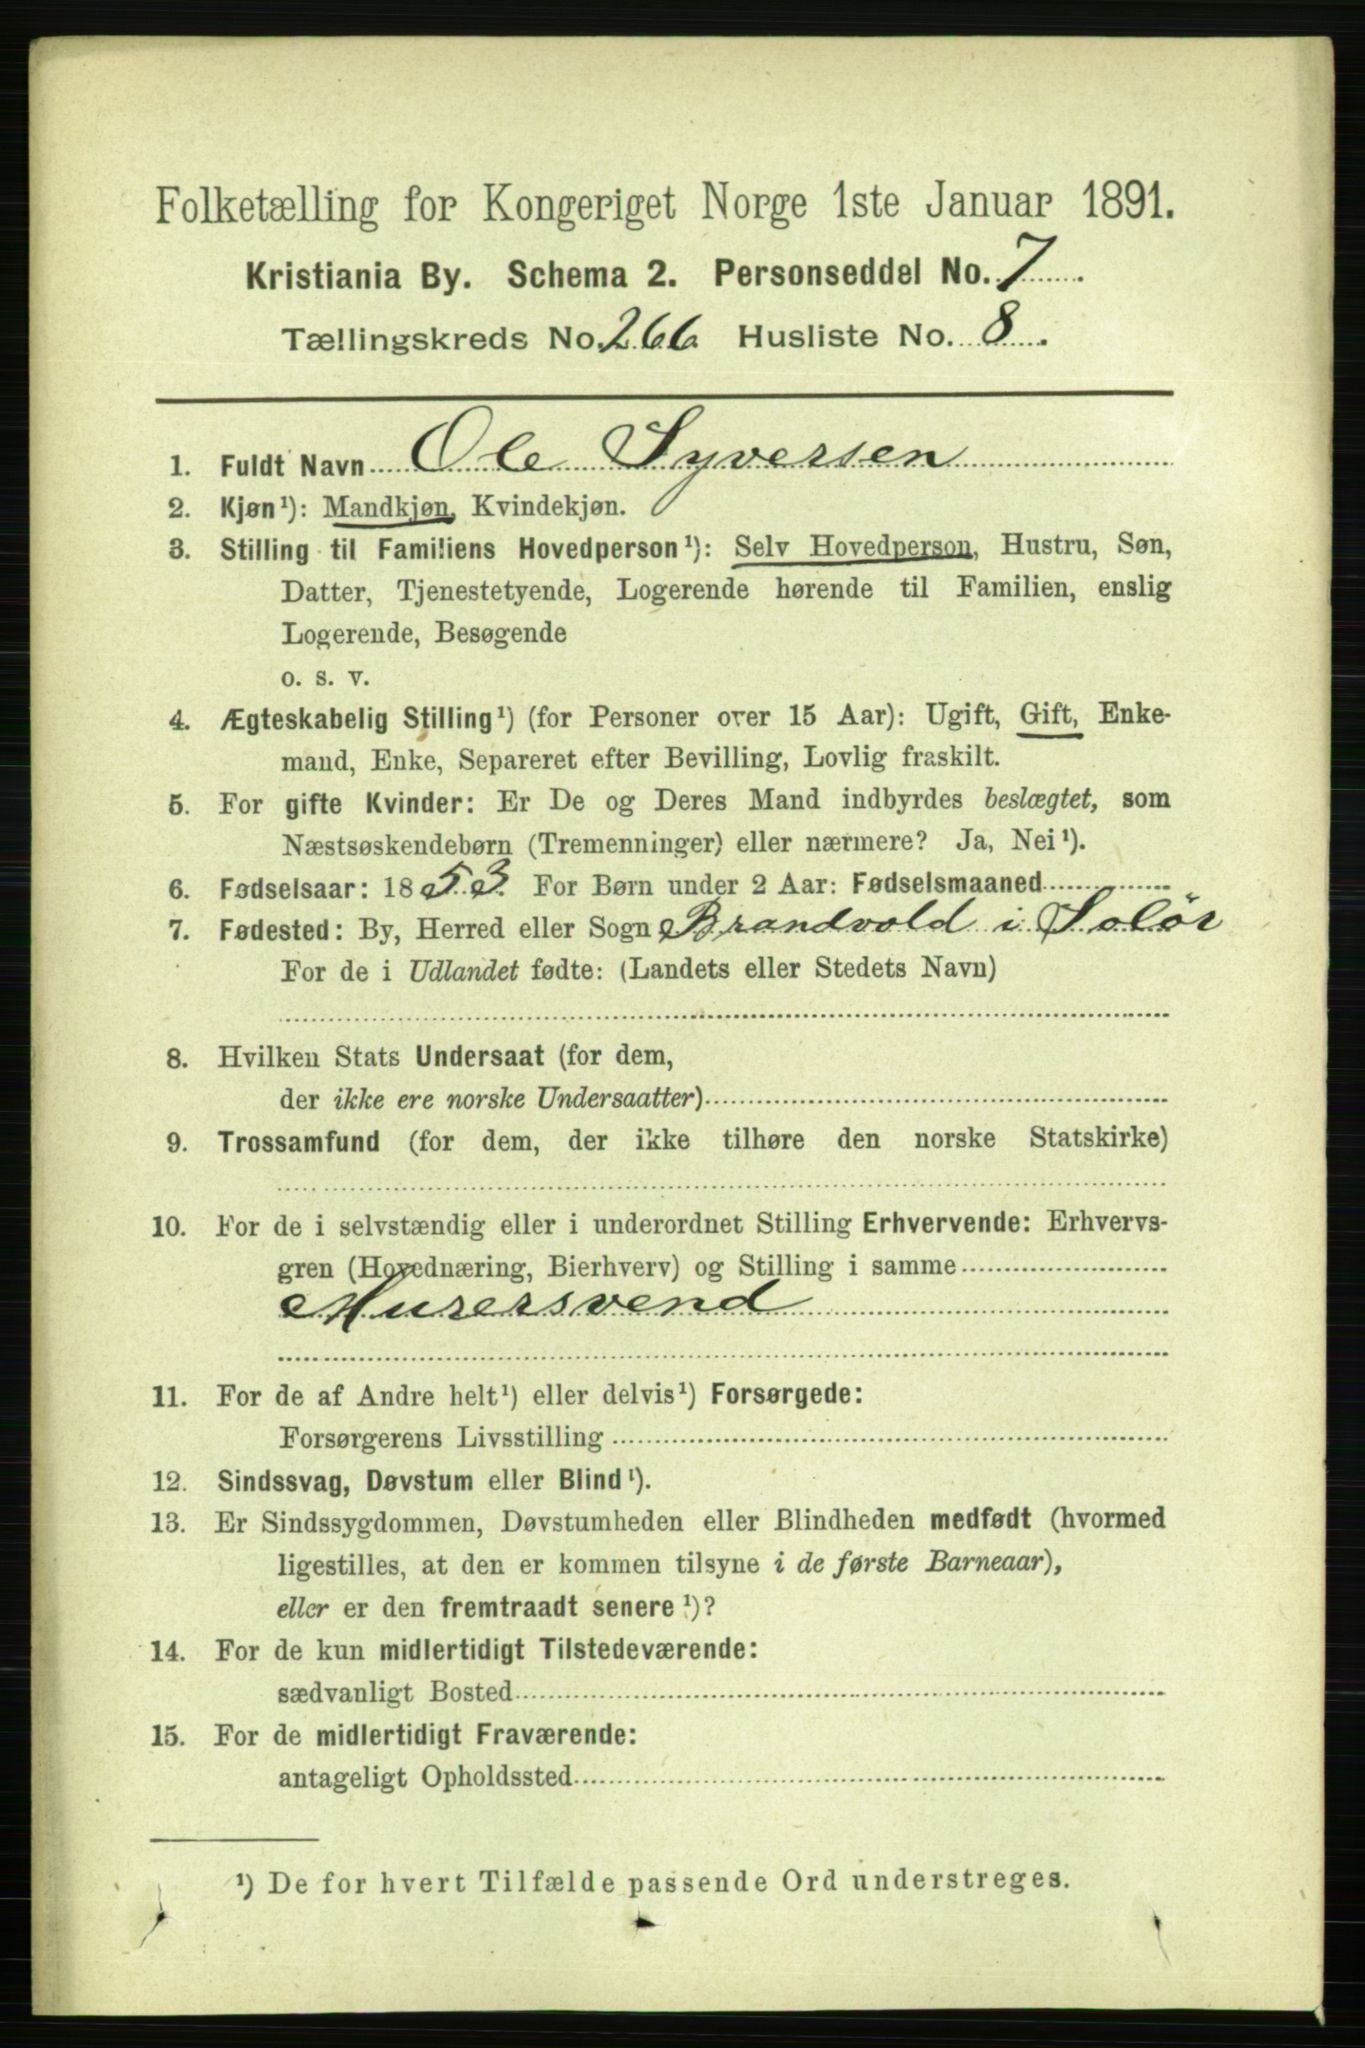 Folketælling for Kongeriget Norge 1ste Januar 1891.
Kristiania By. Schema 2. Personseddel No. 7
Tællingskreds No. 266 Husliste No. 8
1. Fuldt Navn Ole Syversen
2. Kjøn¹): Mandkjøn, Kvindekjøn.
3. Stilling til Familiens Hovedperson¹): Selv Hovedperson, Hustru, Søn,
Datter, Tjenestetyende, Logerende hørende til Familien, enslig
Logerende, Besøgende
o. s. v.
4. Ægteskabelig Stilling¹) (for Personer over 15 Aar): Ugift, Gift, Enke-
mand, Enke, Separeret efter Bevilling, Lovlig fraskilt.
5. For gifte Kvinder: Er De og Deres Mand indbyrdes beslægtet, som
Næstsøskendebørn (Tremenninger) eller nærmere? Ja, Nei¹).
6. Fødselsaar: 1853. For Børn under 2 Aar: Fødselsmaaned
7. Fødested: By, Herred eller Sogn Brandvold i Solör
For de i Udlandet fødte: (Landets eller Stedets Navn)
8. Hvilken Stats Undersaat (for dem,
der ikke ere norske Undersaatter)
9. Trossamfund (for dem, der ikke tilhøre den norske Statskirke)
10. For de i selvstændig eller i underordnet Stilling Erhvervende: Erhvervs-
gren (Hovednæring, Bierhverv) og Stilling i samme
Murersvend
11. For de af Andre helt¹) eller delvis¹) Forsørgede:
Forsørgerens Livsstilling
12. Sindssvag, Døvstum eller Blind¹).
13. Er Sindssygdommen, Døvstumheden eller Blindheden medfødt (hvormed
ligestilles, at den er kommen tilsyne i de første Barneaar),
eller er den fremtraadt senere¹)?
14. For de kun midlertidigt Tilstedeværende:
sædvanligt Bosted
15. For de midlertidigt Fraværende:
antageligt Opholdssted
¹) De for hvert Tilfælde passende Ord understreges.